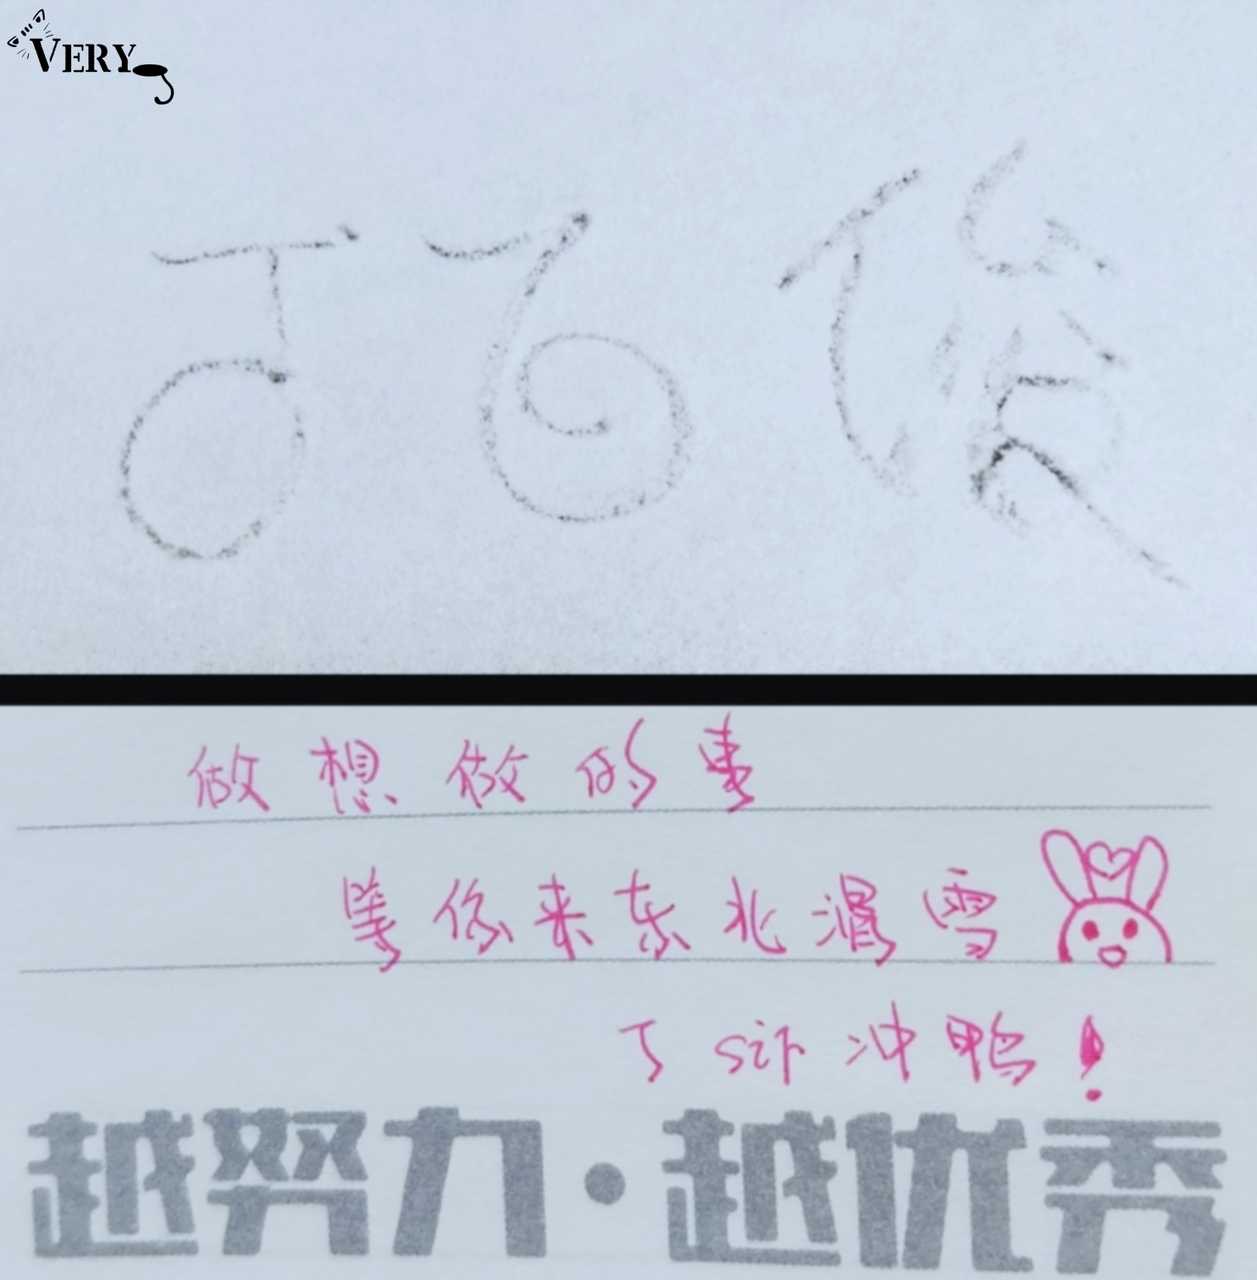 VERY
丁飞俊
做想做的事
等你来东北滑雪
丁sir冲鸭!
越努力·越优秀